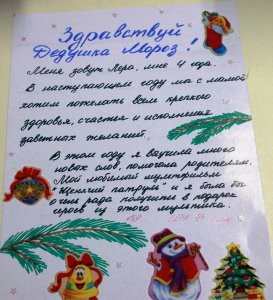 Здравствуй
Дедушка Мороз!
Меня зовут Лера, мне 4 года.
В наступающем году мы с мамой
хотим пожелать всем крепкого
здоровья, счастья и исполнения
заветных желаний.
В этом году я выучила много
новых слов, помогала родителям.
Мой любимый мультфильм
"Щенячий патруль" и я была бы
очень рада получить в подарок
героев из этого мультика.